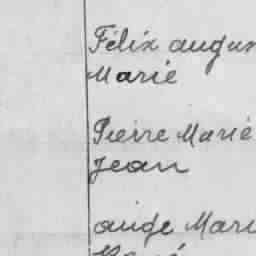 Félix augus
Marie
Pierre Marie
Jean
ange Mari